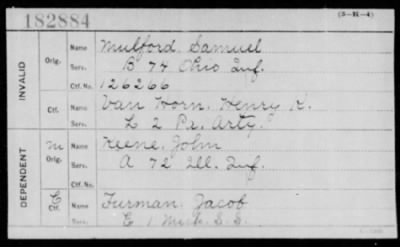 182884
(3-21-4)
INVALID
Orig.
Name Mulford, Samuel
Serv. B 74 Ohio Inf.
Ctf. No. 126266
Ctf.
Name Van Horn, Henry K.
Serv. L 2 Pa. Arty.
DEPENDENT
m
Orig.
Name Keene, John
Serv. A 72 Ill. Inf.
Ctf. No.
Ctf.
Name Furman, Jacob
Serv. E 1 Mich. S. S.